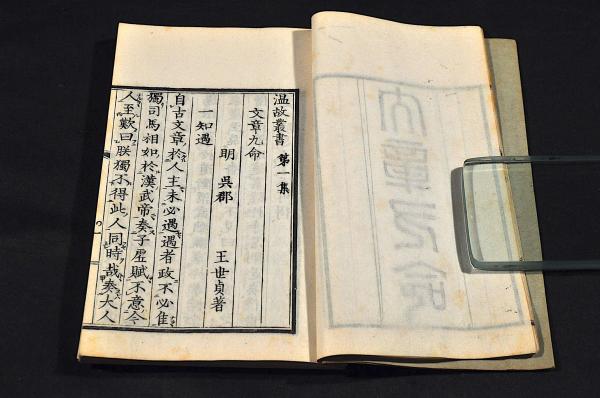 温故叢書 第一集
文章九命
明 呉郡 王世貞著
一 知遇
自古文章於人主未必遇遇者政不必佳
獨司馬相如於漢武帝奏子虚賦不意令
人至歎曰朕獨不得此人同時哉奏大人